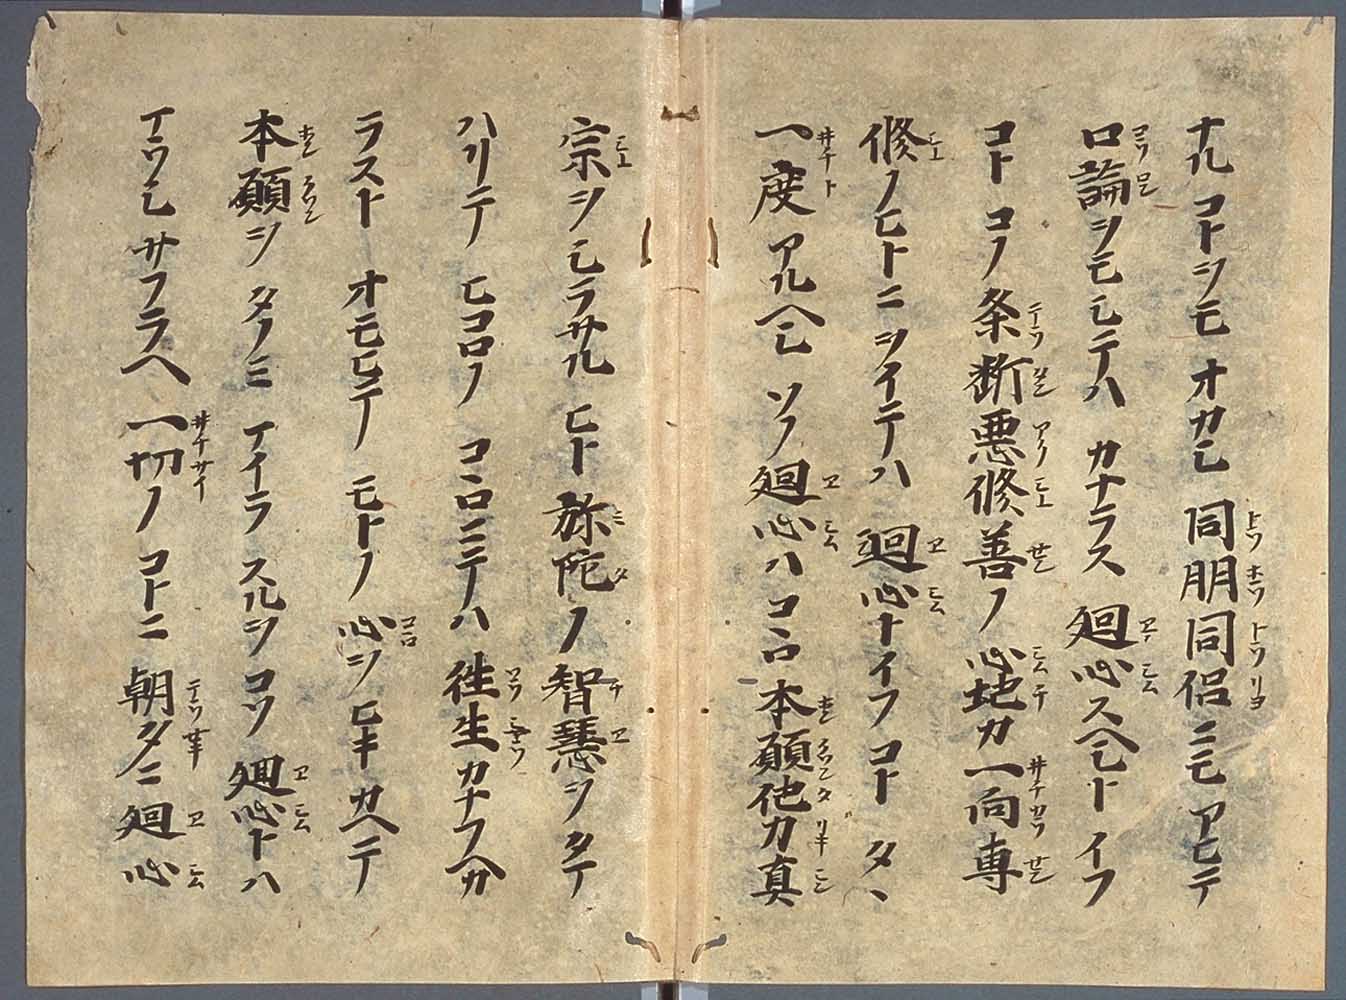 ナルコトヲモオカシ同朋同侶ニモアヒテ
口論ヲモシテハカナラス廻心スヘシトイフ
コトコノ条断悪修善ノ心地カ一向専
修ノヒトニヲイテハ廻心トイフコトタヽ
一度アルヘシソノ廻心ハコロ本願他力真
宗ヲシラサルヒト弥陀ノ智慧ヲタテ
ハリテヒコロノコヽロニテハ往生カナフヘカ
ラストオモヒテモトノ心ヲヒキカヘテ
本願ヲタノミマイラスルヲコソ廻心トハ
マウシサフラヘ一切ノコトニ朝夕ニ廻心